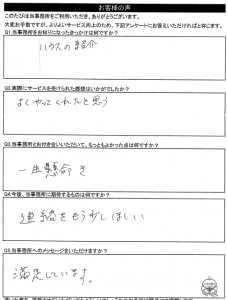 お客様の声
このたびは当事務所をご利用いただき、ありがとうございます。
大変お手数ですが、よりよいサービス向上のため、下記アンケートにお答えいただければと存じます。
Q1.当事務所をお知りになったきっかけは何ですか？
ハウスの紹介
Q2.実際にサービスを受けられた感想はいかがでしたか？
よくやってくれたと思う
Q3.当事務所とお付き合いいただいて、もっともよかった点は何ですか？
一生懸命さ
Q4.今後、当事務所に期待するものは何ですか？
連絡をもう少しほしい
Q5.当事務所へのメッセージをいただけますか？
満足しています。